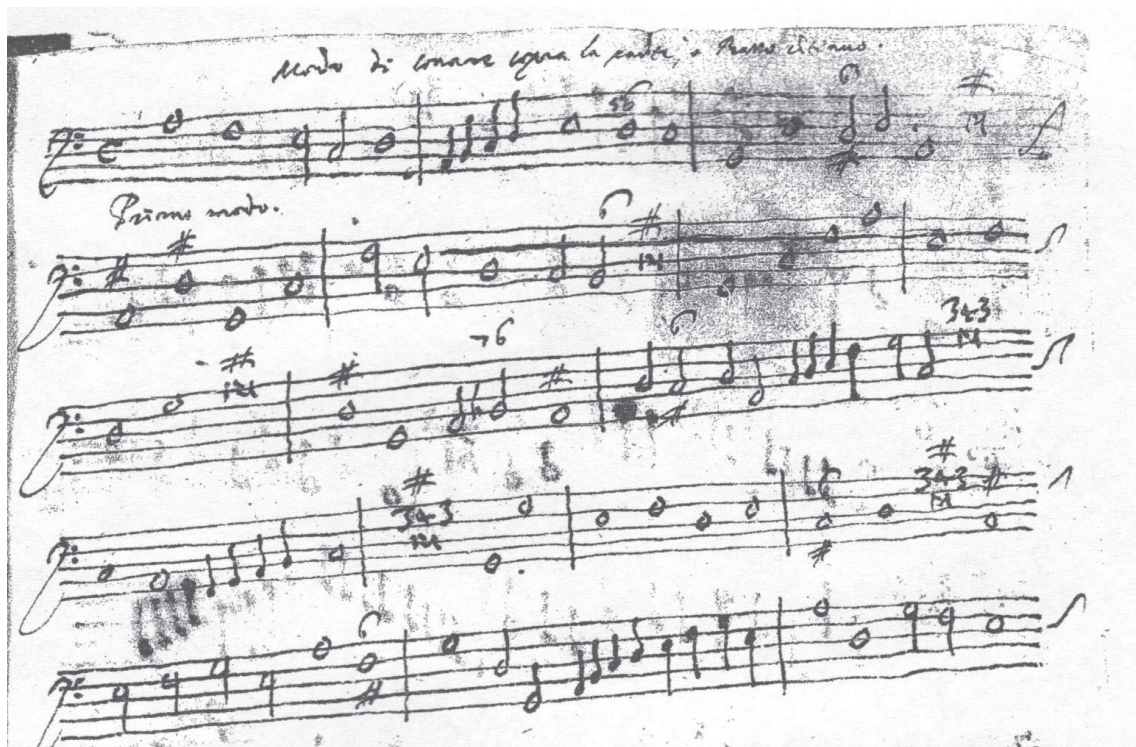 Modo di sonare sopra la parte, o Basso continuo.
56 6
Primo modo.
6
76 6 343
343
6